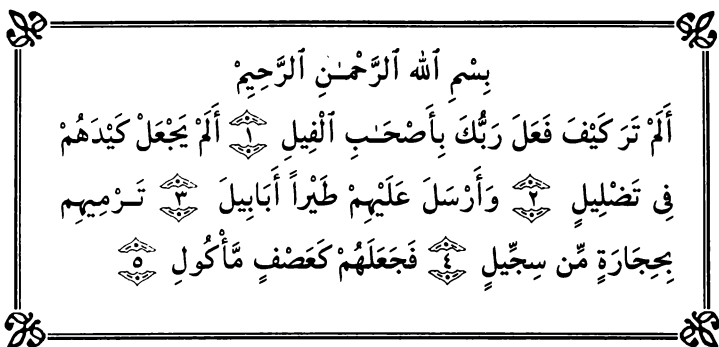 بِسْمِ ٱللهِ ٱلرَّحْمَـٰنِ ٱلرَّحِيمِْ
أَلَمْ تَرَ كَيْفَ فَعَلَ رَبُّكَ بِأَصْحَـٰبِ ٱلْفِيلِ ١ أَلَمْ يَجْعَلْ كَيْدَهُمْ
فِى تَضْلِيلٍ ٢ وَأَرْسَلَ عَلَيْهِمْ طَيْراً أَبَابِيلَ ٣ تَـرْمِيهِم
بِحِجَارَةٍ مِّن سِجِّيلٍ ٤ فَجَعَلَهُمْ كَعَصْفٍ مَّأْكُولِ ٥